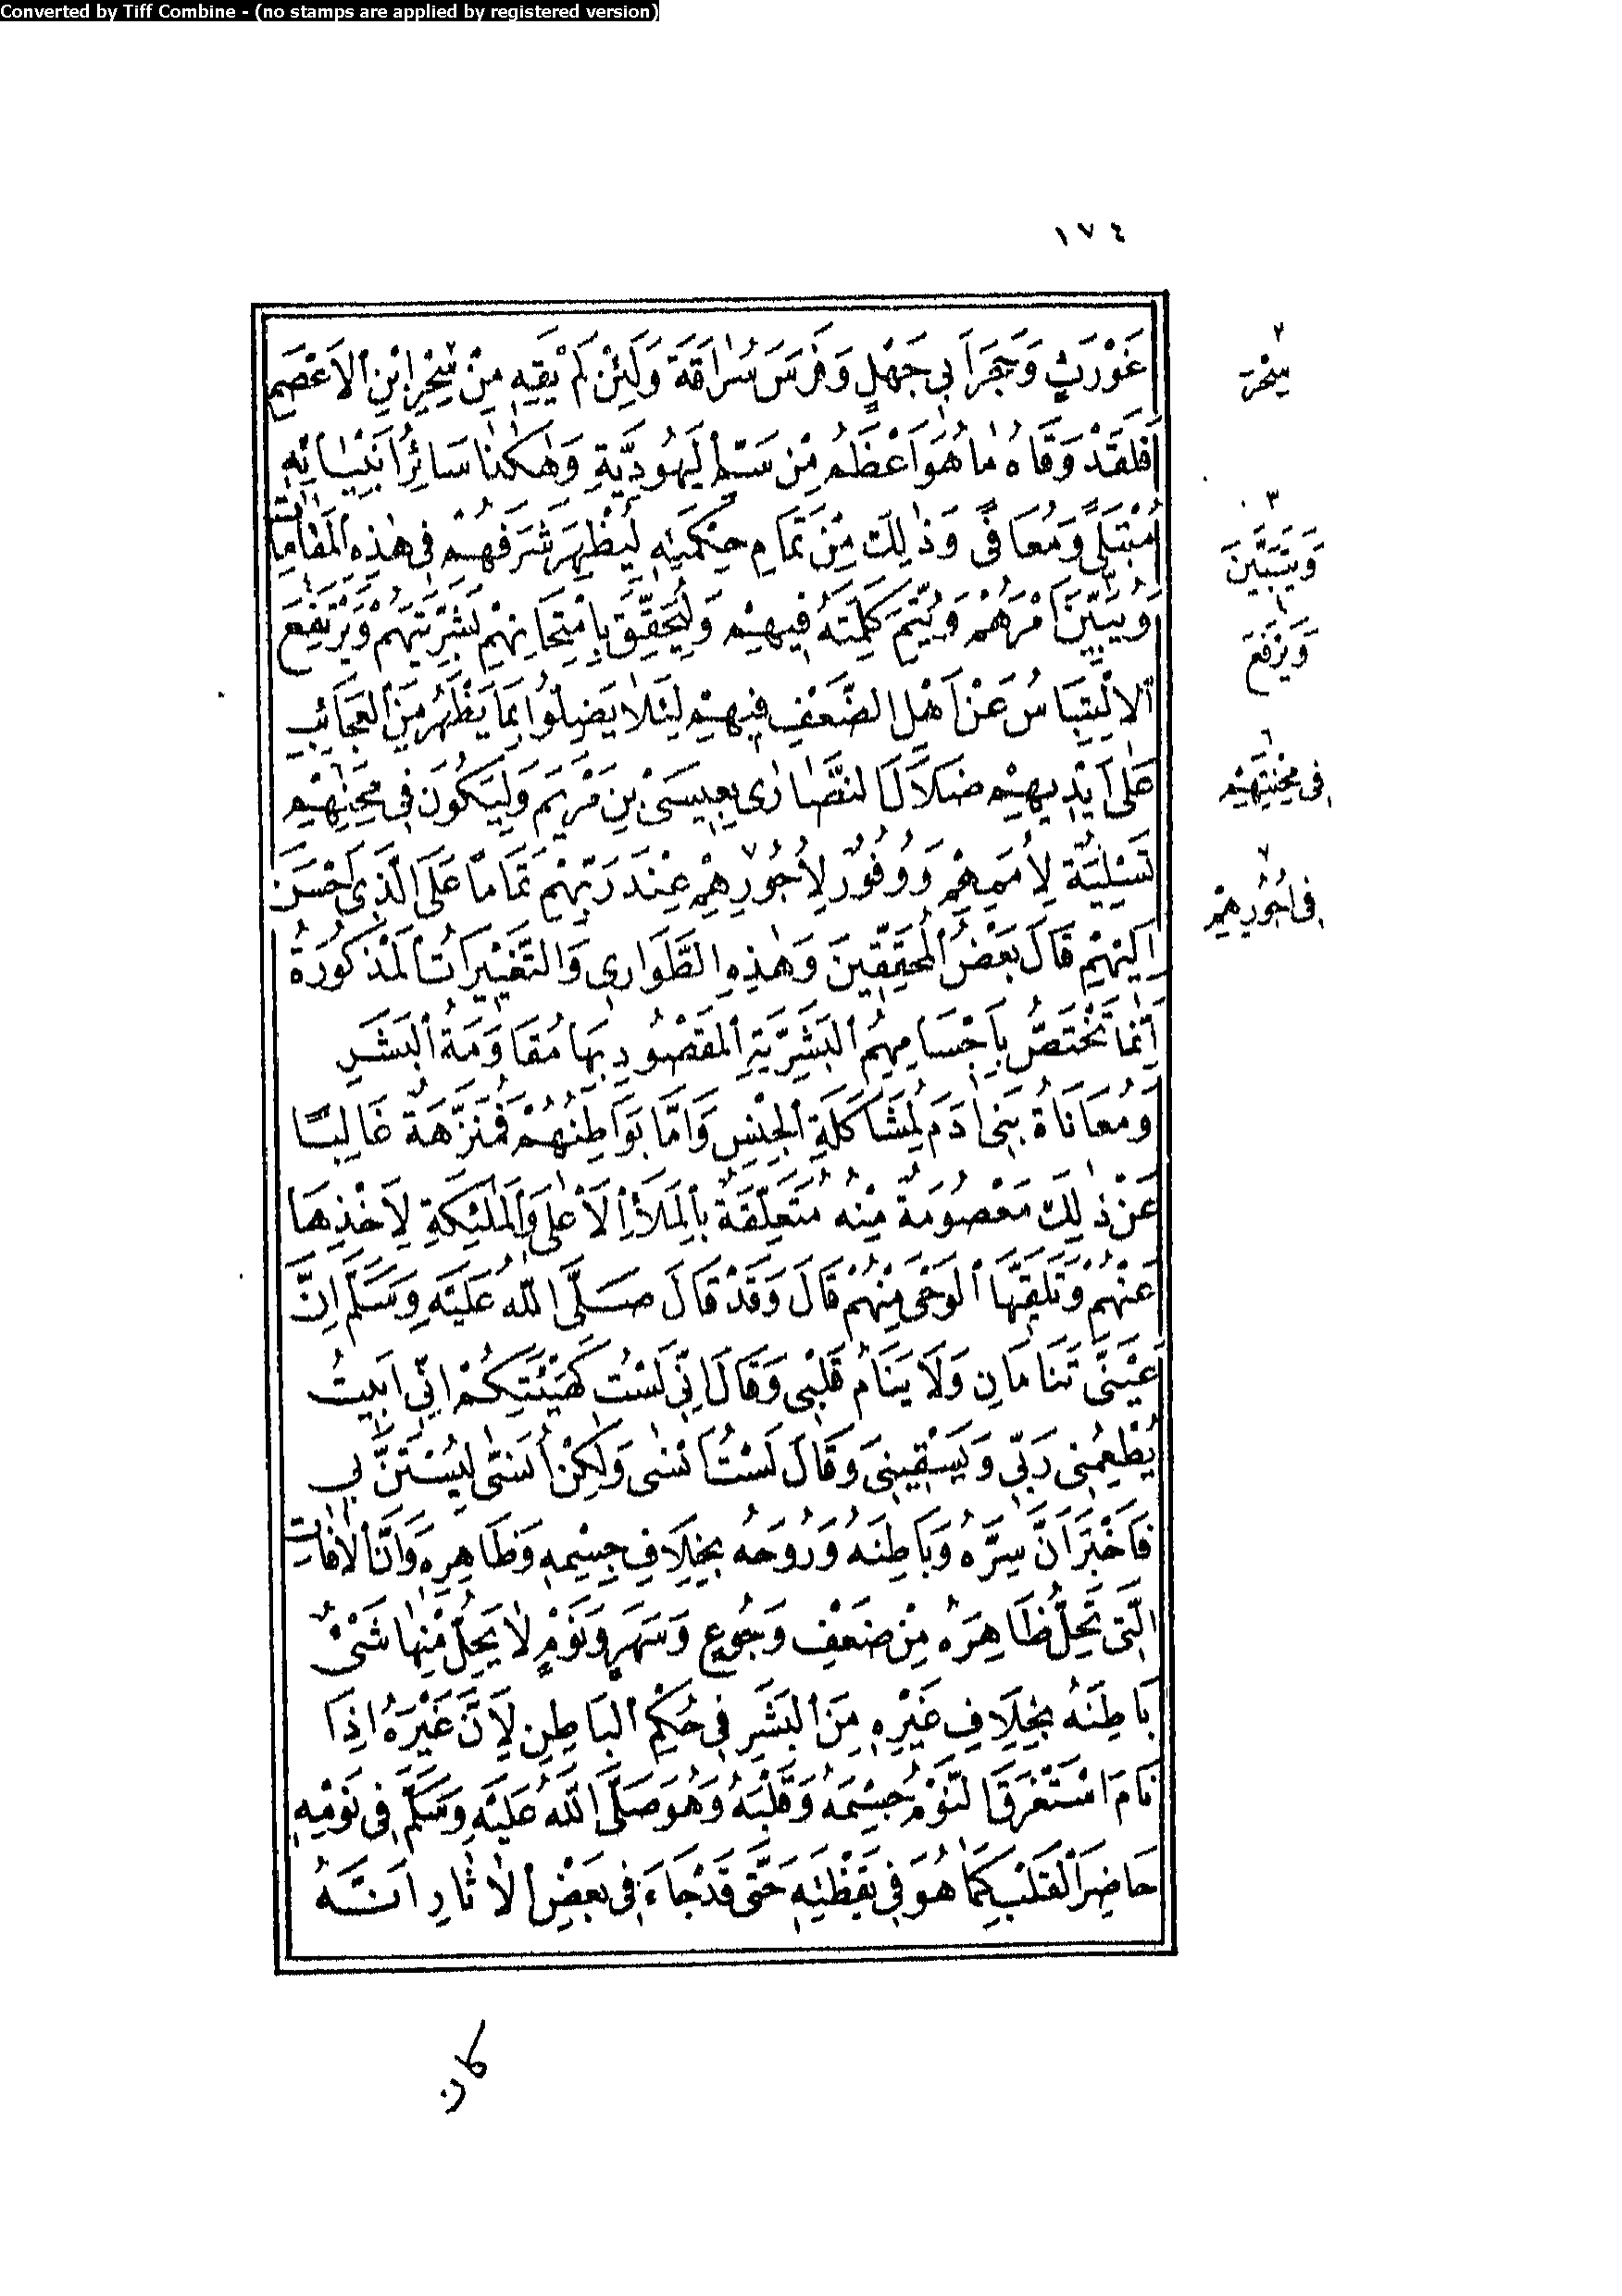 Converted by Tiff Combine - (no stamps are applied by registered version)
١٧٤
غَوْرَثٍ وَحَجَرَ اَبِي جَهْلٍ وَفَرَسَ سُرَاقَةَ وَلَئِنْ لَمْ يَقِهِ مِنْ سِحْرِ ابْنِ الْاَعْصَمِ
فَلَقَدْ وَقَاهُ مَا هُوَ اَعْظَمُ مِنْ سَمِّ الْيَهُودِيَّةِ وَهٰكَذَا سَائِرُ اَنْبِيَائِهِ
مُبْتَلًى وَمُعَافًى وَذٰلِكَ مِنْ تَمَامِ حِكْمَتِهِ لِيُظْهِرَ شَرَفَهُمْ فِى هٰذِهِ الْمَقَامَاتِ
وَيُبَيِّنَ اَمْرَهُمْ وَيُتِمَّ كَلِمَتَهُ فِيهِمْ وَلِيُحَقِّقَ بِامْتِحَانِهِمْ بَشَرِيَّتَهُمْ وَيَرْتَفِعَ
الْاِلْتِبَاسُ عَنْ اَهْلِ الضَّعْفِ فِيهِمْ لِئَلَّا يَضِلُّوا بِمَا يَظْهَرُ مِنَ الْعَجَائِبِ
عَلٰى اَيْدِيهِمْ ضَلَالَ النَّصَارٰى بِعِيسَى بْنِ مَرْيَمَ وَلِيَكُونَ فِى مِحَنِهِمْ
تَسْلِيَةٌ لِاُمَمِهِمْ وَوُفُورٌ لِاُجُورِهِمْ عِنْدَ رَبِّهِمْ تَمَامًا عَلَى الَّذِى اَحْسَنَ
اِلَيْهِمْ قَالَ بَعْضُ الْمُحَقِّقِينَ وَهٰذِهِ الطَّوَارِى وَالتَّغْيِيرَاتُ الْمَذْكُورَةُ
اِنَّمَا تَخْتَصُّ بِاَجْسَامِهِمُ الْبَشَرِيَّةِ الْمَقْصُودِ بِهَا مُقَاوَمَةُ الْبَشَرِ
وَمُعَانَاةُ بَنِى اٰدَمَ لِمُشَاكَلَةِ الْجِنْسِ وَاَمَّا بَوَاطِنُهُمْ فَمُنَزَّهَةٌ غَالِبًا
عَنْ ذٰلِكَ مَعْصُومَةٌ مِنْهُ مُتَعَلِّقَةٌ بِالْمَلَأِ الْاَعْلٰى وَالْمَلٰئِكَةِ لِاَخْذِهَا
عَنْهُمْ وَتَلَقِّيهَا الْوَحْىَ مِنْهُمْ قَالَ وَقَدْ قَالَ صَلَّى اللّٰهُ عَلَيْهِ وَسَلَّمَ اِنَّ
عَيْنَىَّ تَنَامَانِ وَلَا يَنَامُ قَلْبِى وَقَالَ اِنِّى لَسْتُ كَهَيْئَتِكُمْ اِنِّى اَبِيتُ
يُطْعِمُنِى رَبِّى وَيَسْقِينِى وَقَالَ لَسْتُ اَنْسٰى وَلٰكِنْ اُنَسّٰى لِيُسْتَنَّ بِى
فَاَخْبَرَ اَنَّ سِرَّهُ وَبَاطِنَهُ وَرُوحَهُ بِخِلَافِ جِسْمِهِ وَظَاهِرِهِ وَاَنَّ الْاٰفَاتِ
الَّتِى تَحِلُّ ظَاهِرَهُ مِنْ ضَعْفٍ وَجُوعٍ وَسَهَرٍ وَنَوْمٍ لَا يَحِلُّ مِنْهَا شَىْءٌ
بَاطِنَهُ بِخِلَافِ غَيْرِهِ مِنَ الْبَشَرِ فِى حُكْمِ الْبَاطِنِ لِاَنَّ غَيْرَهُ اِذَا
نَامَ اسْتَغْرَقَ النَّوْمُ جِسْمَهُ وَقَلْبَهُ وَهُوَ صَلَّى اللّٰهُ عَلَيْهِ وَسَلَّمَ فِى نَوْمِهِ
حَاضِرُ الْقَلْبِ كَمَا هُوَ فِى يَقَظَتِهِ حَتّٰى قَدْ جَاءَ فِى بَعْضِ الْاٰثَارِ اَنَّهُ
٢
سِحْرَ
٣
وَيَتَبَيَّنَ
وَيَرْفَعَ
٦
فِى مِحْنَتِهِمْ
٧
فِى اُجُورِهِمْ
كان